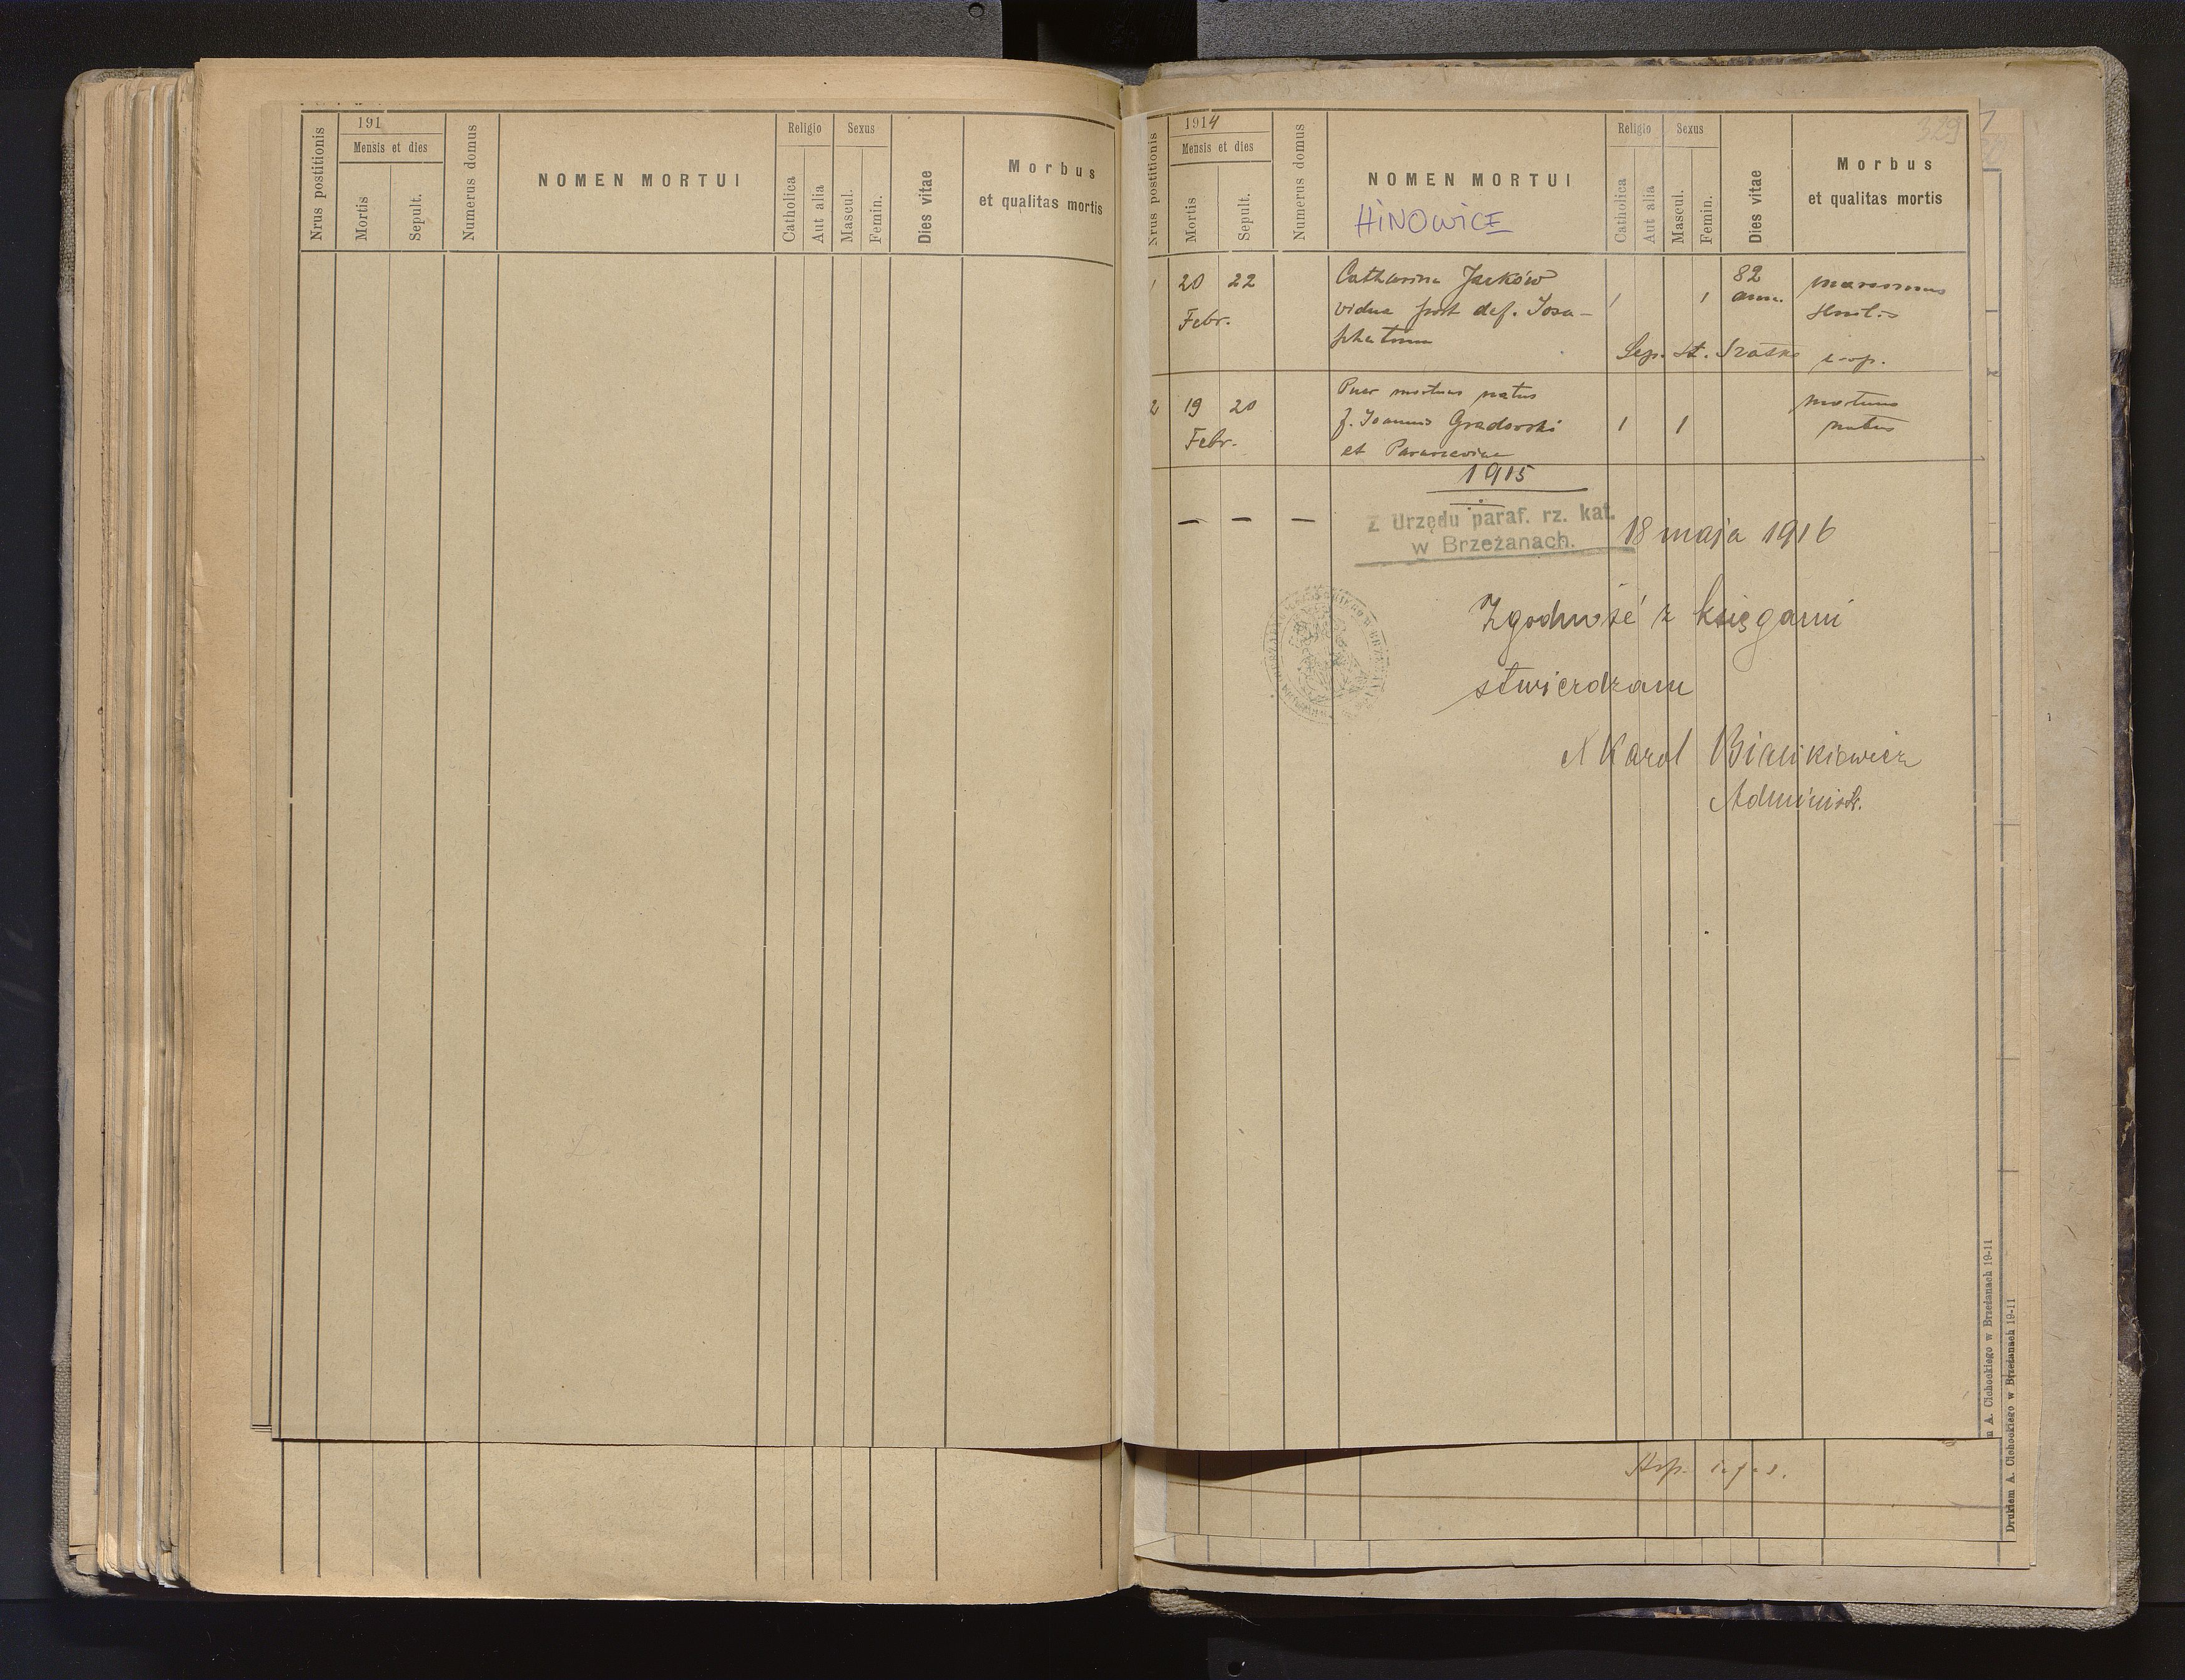 Nrus postitionis
191
Mensis et dies
Mortis
Sepult.
Numerus domus
NOMEN MORTUI
Religio
Catholica
Aut alia
Sexus
Mascul.
Femin.
Dies vitae
Morbus
et qualitas mortis
329
Nrus postitionis
1914
Mensis et dies
Mortis
Sepult.
Numerus domus
NOMEN MORTUI
HINOWICE
Religio
Catholica
Aut alia
Sexus
Mascul.
Femin.
Dies vitae
Morbus
et qualitas mortis
1 20 22 Catharina Jacków 82
Febr. vidua post def. Josa- 1 1 ann. marasmus
phatum
Sep. St.
2 19 20 Puer mortuus natus mortuus
Febr. f. Joannis Gradowski 1 1 natus
et Parasceviae
1915
— — —
Z Urzędu paraf. rz. kat.
w Brzeżanach.
18 maja 1916
Zgodność z księgami
stwierdzam
X Karol Bialikiewicz
Administr.
A. Cichockiego w Brzeżanach 19-11
Drukiem A. Cichockiego w Brzeżanach 19-11